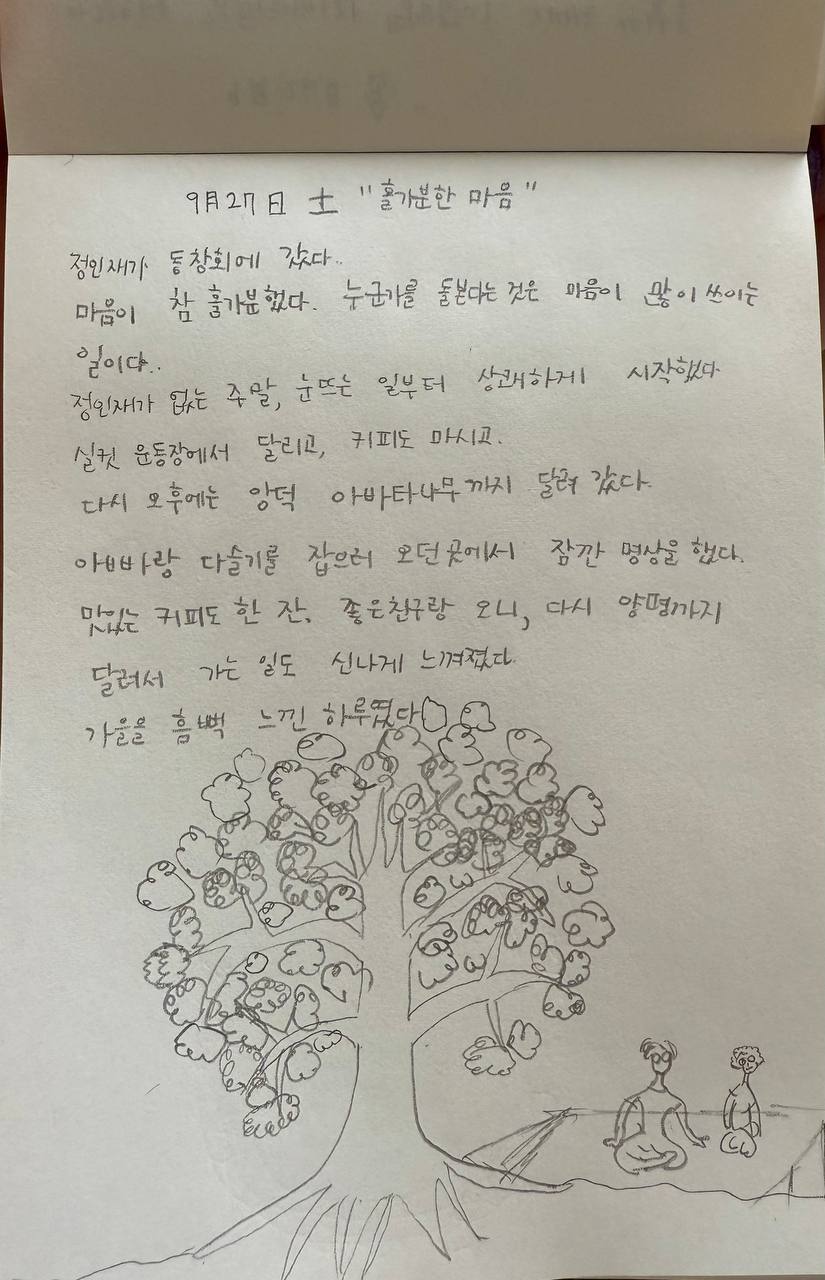 9月27日 土 "홀가분한 마음"
정인재가 동창회에 갔다..
마음이 참 홀가분했다. 누군가를 돌본다는 것은 마음이 많이 쓰이는
일이다..
정인재가 없는 주말, 눈뜨는 일부터 상쾌하게 시작했다
실컷 운동장에서 달리고, 커피도 마시고.
다시 오후에는 앙덕 아바타나무까지 달려 갔다.
아빠랑 다슬기를 잡으러 오던 곳에서 잠깐 명상을 했다.
맛있는 커피도 한 잔. 좋은친구랑 오니, 다시 양평까지
달려서 가는 일도 신나게 느껴졌다.
가을을 흠뻑 느낀 하루였다